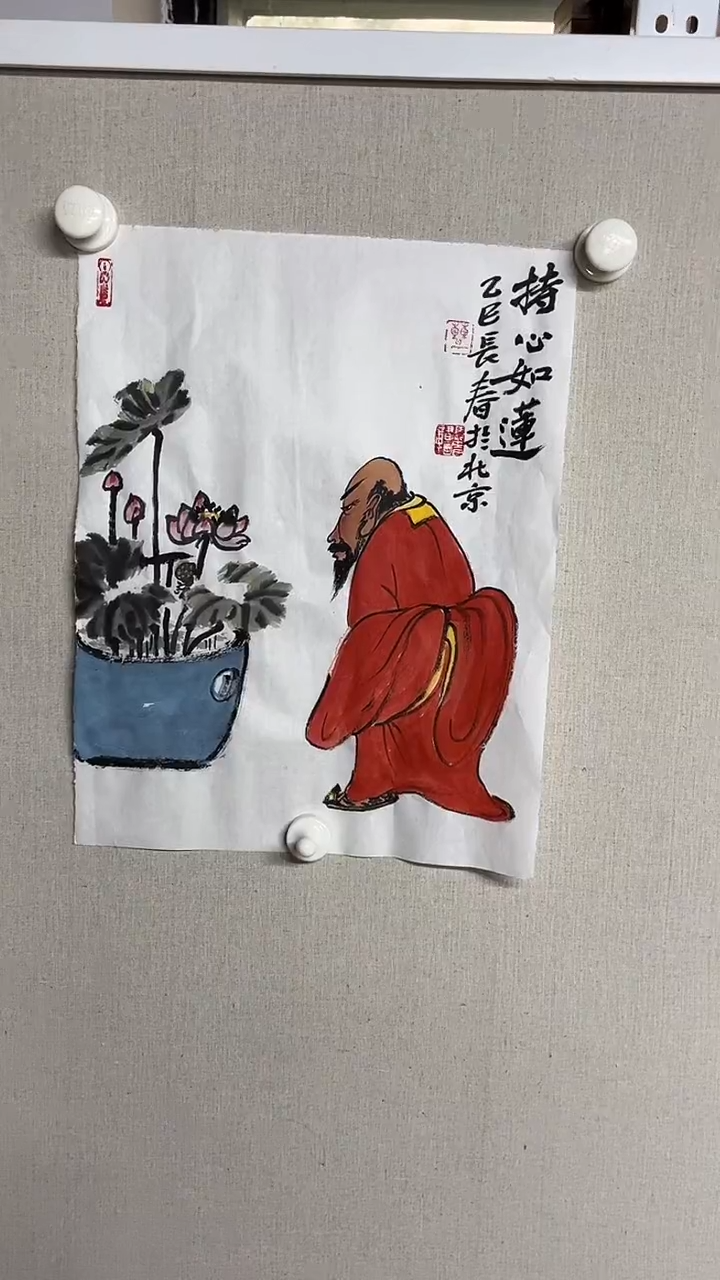 持心如蓮
乙巳長春於北京